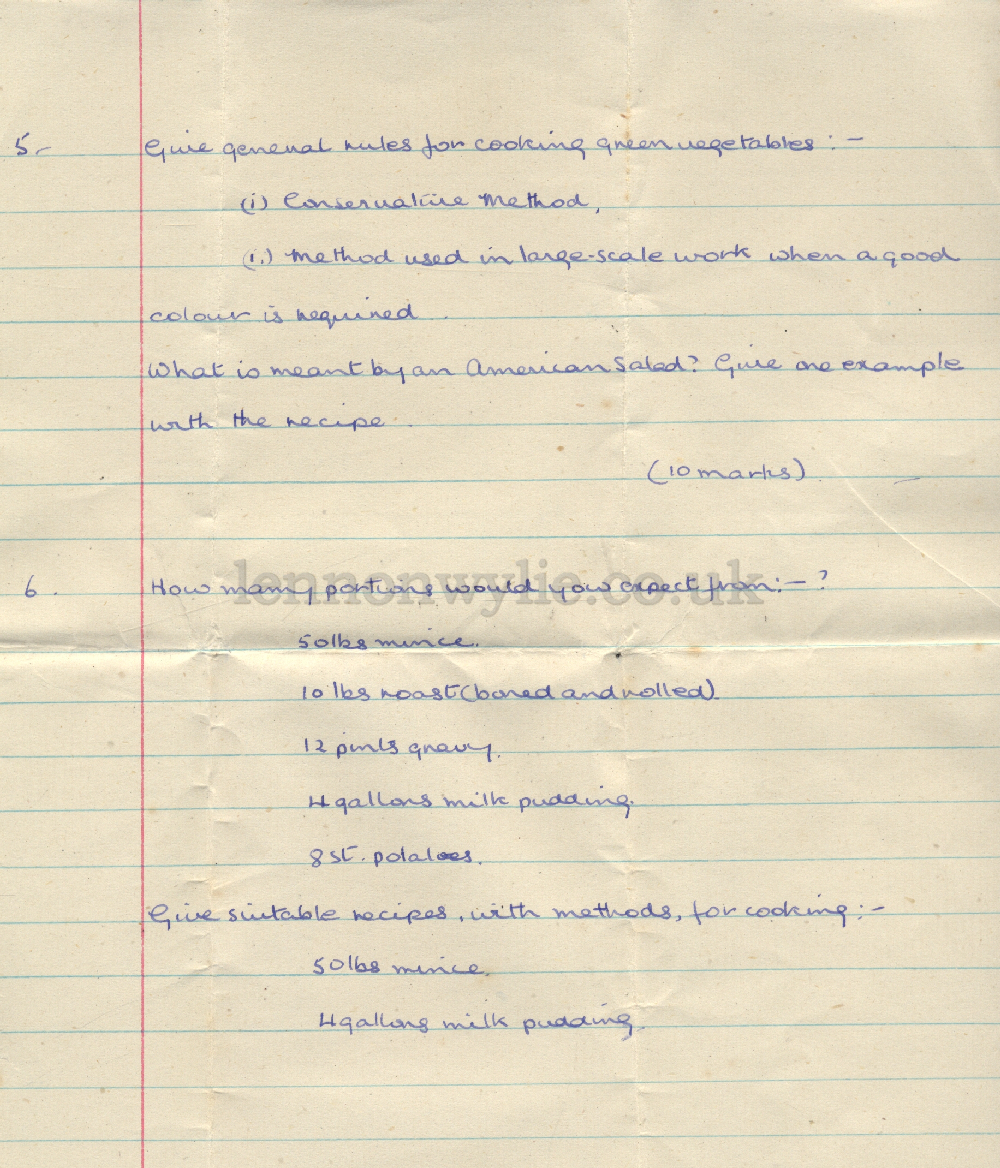 5- Give general rules for cooking green vegetables :-
(i) Conservative Method,
(i.) Method used in large-scale work when a good
colour is required.
What is meant by an American Salad? Give one example
with the recipe.
(10 marks)
lennonwylie.co.uk
6. How many portions would you expect from:- ?
50lbs mince.
10 lbs roast (boned and rolled).
12 pints gravy.
4 gallons milk pudding.
8 st. potatoes.
Give suitable recipes, with methods, for cooking :-
50lbs mince.
4 gallons milk pudding.